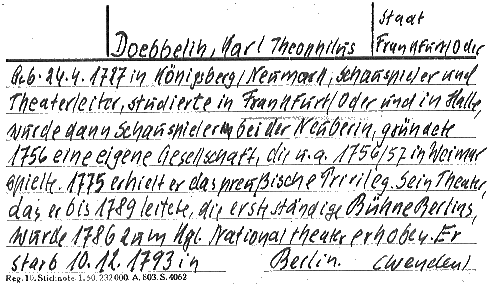 Staat
Doebbelin, Karl Theophilus Frankfurt/Oder
Geb. 24.4.1727 in Königsberg/Neumark, Schauspieler und
Theaterleiter, studierte in Frankfurt/Oder und in Halle,
wurde dann Schauspieler bei der Neuberin, gründete
1756 eine eigene Gesellschaft, die u.a. 1756/57 in Weimar
spielte. 1775 erhielt er das preußische Privileg. Sein Theater,
das er bis 1789 leitete, die erste ständige Bühne Berlins,
wurde 1786 zum Kgl. Nationaltheater erhoben. Er
starb 10.12.1793 in Berlin. (Wendent)
Reg. 10. Stichnote. 1. 50. 232000. A. 803. S. 4062